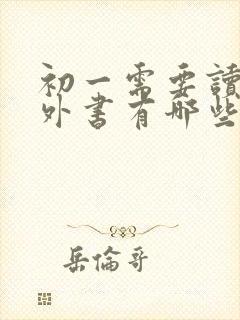 初一需要讀
外書有哪些
岳倫哥